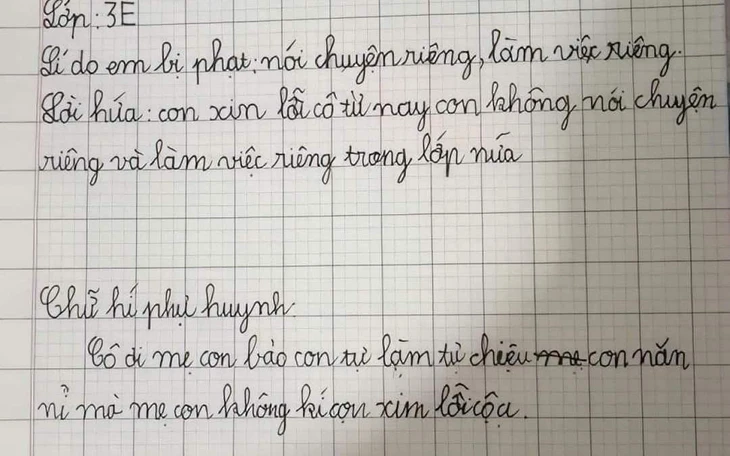 Lớp: 3E
Lí do em bị phạt: nói chuyện riêng, làm việc riêng.
Lời hứa: con xin lỗi cô từ nay con không nói chuyện
riêng và làm việc riêng trong lớp nữa
Chữ kí phụ huynh:
Cô ơi mẹ con bảo con tự làm tự chiệu con năn
nỉ mà mẹ con không kí cọn xin lỗi cộ ạ.